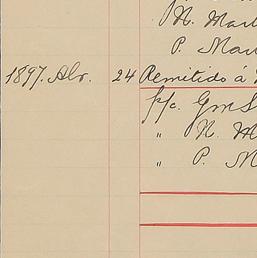 N. Mar
P. Mar
1897. Abr. 24 Remitido á
p/c. GmS
" N. M
" P. M